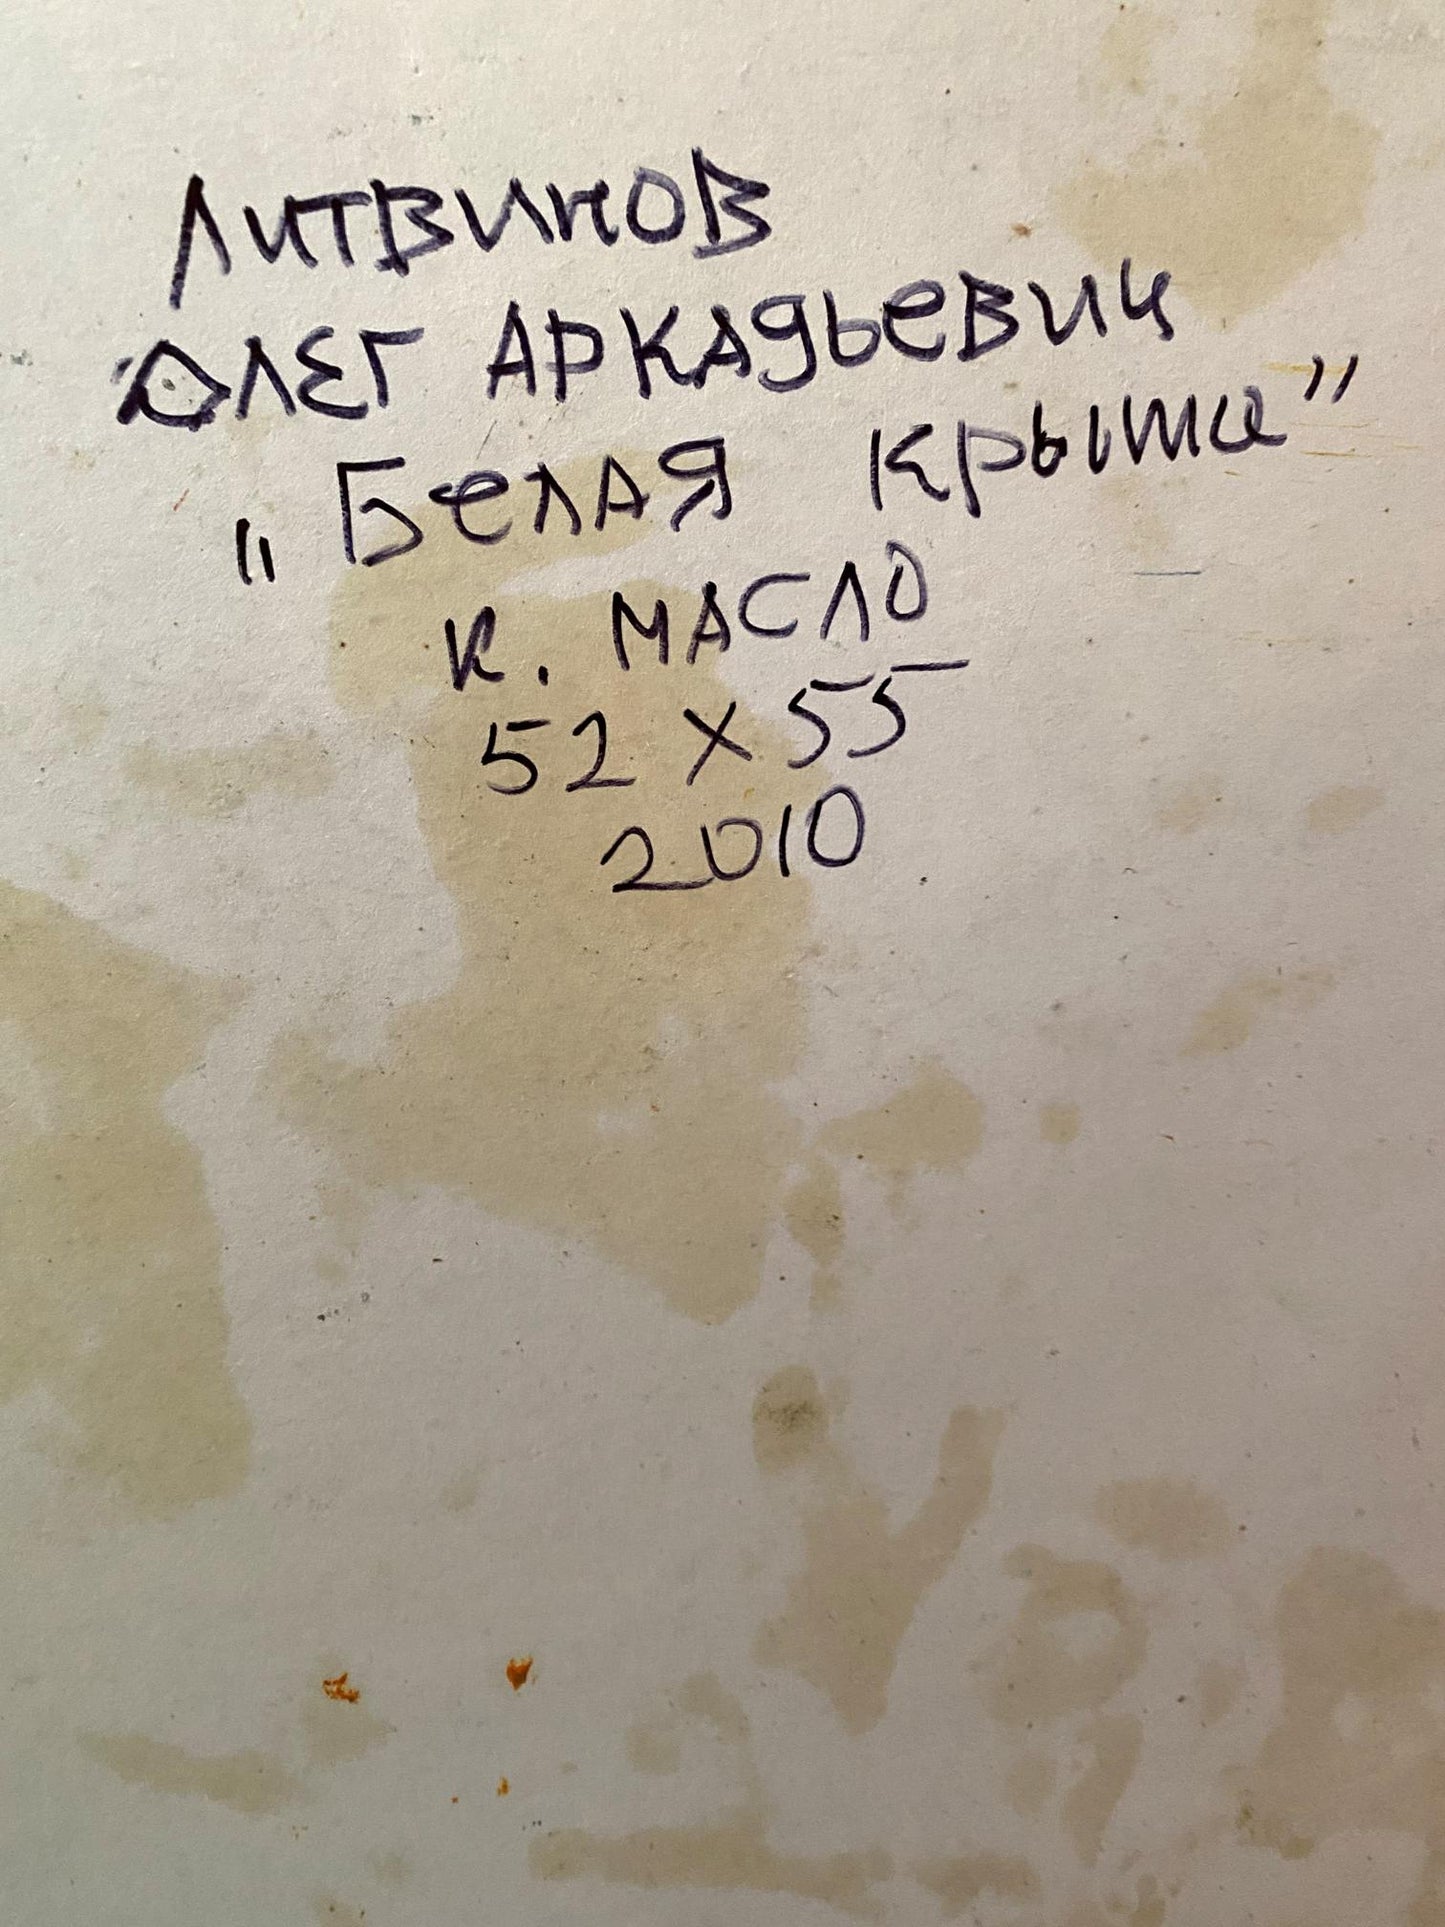 Литвинов
Олег Аркадьевич
„Белая крыша”
к. масло
52 x 55
2010